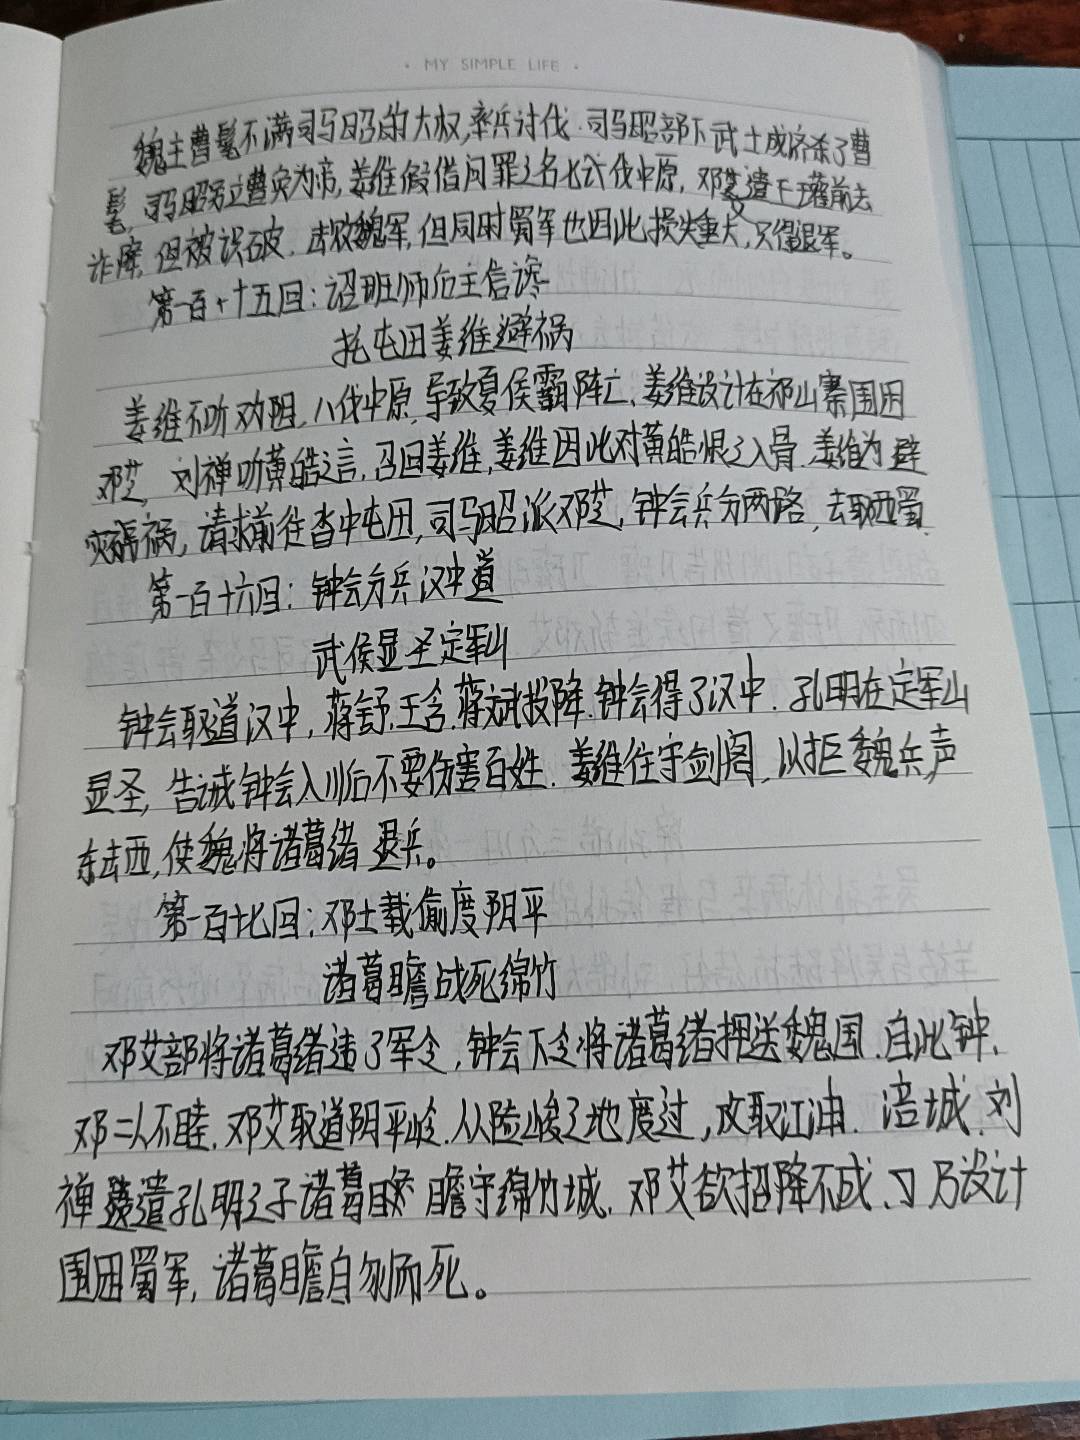 · MY SIMPLE LIFE ·
魏主曹髦不满司马昭的大权,率兵讨伐.司马昭部下武士成济杀了曹
髦,司马昭另立曹奂为帝,姜维假借问罪之名七伐中原,邓艾遣王瓘前去
诈降,但被识破.击败魏军,但同时蜀军也因此损失重大,只得退军。
第一百十五回:诏班师后主信谗
托屯田姜维避祸
姜维不听劝阻,八伐中原,导致夏侯霸阵亡,姜维设计在祁山寨围困
邓艾,刘禅听黄皓之言,召回姜维,姜维因此对黄皓恨之入骨.姜维为避
灾祸,请求前往沓中屯田,司马昭派邓艾,钟会兵分两路,去取西蜀.
第一百十六回:钟会分兵汉中道
武侯显圣定军山
钟会取道汉中,蒋舒.王含.蒋斌投降.钟会得了汉中.孔明在定军山
显圣,告诫钟会入川后不要伤害百姓.姜维住守剑阁,以拒魏兵,声
东击西,使魏将诸葛绪退兵。
第一百十七回:邓士载偷度阴平
诸葛瞻战死绵竹
邓艾部将诸葛绪违了军令,钟会下令将诸葛绪押送魏国.自此钟、
邓二人不睦.邓艾取道阴平岭.从险峻之地度过,攻取江油.涪城.刘
禅遣孔明之子诸葛瞻守绵竹城.邓艾欲招降不成、乃设计
围困蜀军,诸葛瞻自刎而死。